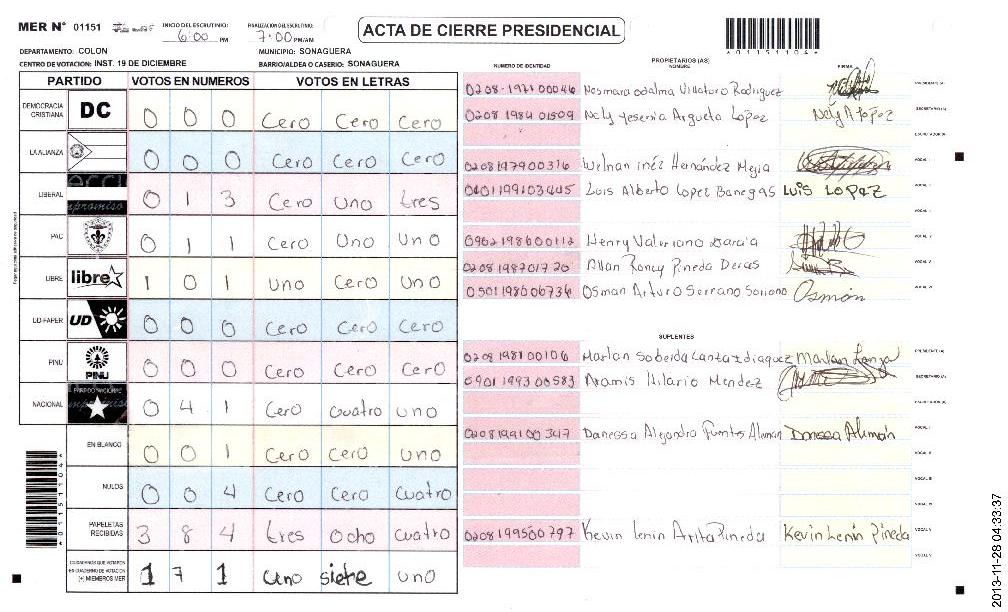 MER N° 01151 INICIO DEL ESCRUTINIO: 6:00 PM FINALIZACION DEL ESCRUTINIO: 7:00 PM/AM
ACTA DE CIERRE PRESIDENCIAL
*01151104*
DEPARTAMENTO: COLON MUNICIPIO: SONAGUERA
CENTRO DE VOTACION: INST. 19 DE DICIEMBRE BARRIO/ALDEA O CASERIO: SONAGUERA
PARTIDO VOTOS EN NUMEROS VOTOS EN LETRAS
DEMOCRACIA CRISTIANA DC 0 0 0 Cero Cero Cero
LA ALIANZA 0 0 0 Cero Cero Cero
LIBERAL 0 1 3 Cero Uno tres
PAC 0 1 1 Cero Uno Uno
LIBRE libre 1 0 1 Uno Cero Uno
UD-FAPER UD 0 0 0 Cero Cero Cero
PINU PINU 0 0 0 Cero Cero Cero
NACIONAL 0 4 1 Cero cuatro uno
EN BLANCO 0 0 1 Cero Cero uno
NULOS 0 0 4 Cero Cero cuatro
PAPELETAS RECIBIDAS 3 8 4 tres Ocho cuatro
CIUDADANOS QUE VOTARON EN CUADERNO DE VOTACION (+) MIEMBROS MER 1 7 1 uno siete uno
NUMERO DE IDENTIDAD PROPIETARIOS (AS) NOMBRE FIRMA
0208-1971 00046 Nesmara odalma Villatoro Rodriguez PRESIDENTE (A)
0208 1984 01509 Nely yesenia Argueta Lopez Nely A Lopez SECRETARIO (A)
ESCRUTADOR (A)
0208197900316 Welnan inéz Hernández Mejia VOCAL I
0401199103445 Luis Alberto Lopez Banegas LUIS LOPEZ
0902198600112 Henry Valeriano Garcia
0208198701720 Allan Roney Pineda Deras
0501198006734 Osman Arturo Serrano Soriano Osmán
SUPLENTES
0208198100106 Marlan Sobeida Lanza Marlan Lanza PRESIDENTE (A)
0901 1993 00583 Aramis Hilario Mendez SECRETARIO (A)
ESCRUTADOR (A)
0208199100347 Danessa Alejandra Fuentes Aleman Danessa Alemán VOCAL I
VOCAL II
VOCAL III
0208199500797 Kevin Lenin Arita Pineda Kevin Lenin Pineda
2013-11-28 04:33:37